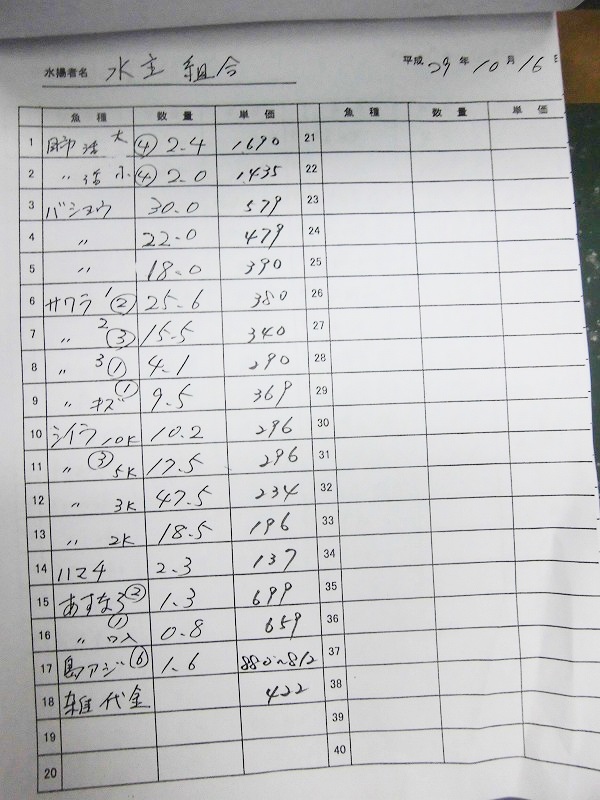 水揚者名 水主組合 平成 29 年 10 月 16
魚種 数量 単価 魚種 数量 単価
1 活 大 ④ 2.4 1690 21
2 〃 活 小 ④ 2.0 1435 22
3 バショウ 30.0 579 23
4 〃 22.0 479 24
5 〃 18.0 390 25
6 サワラ 1 ② 25.6 380 26
7 〃 2 ③ 15.5 340 27
8 〃 3 ① 4.1 290 28
9 〃 キズ ① 9.5 369 29
10 シイラ 10K 10.2 296 30
11 〃 ③ 5K 17.5 296 31
12 〃 3K 47.5 234 32
13 〃 2K 18.5 196 33
14 ハマチ 2.3 137 34
15 あすなろ ② 1.3 699 35
16 〃 ① 0.8 659 36
17 島アジ ⑥ 1.6 880〜812 37
18 雑代金 422 38
19 39
20 40